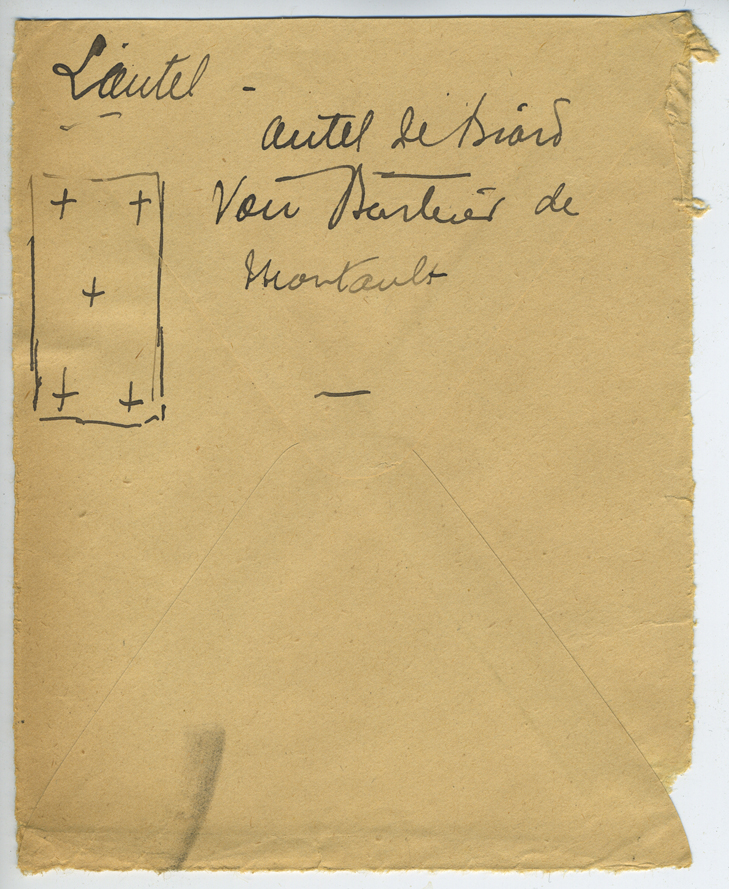 L'autel -
autel de Biard
Voir Barbier de
Montault